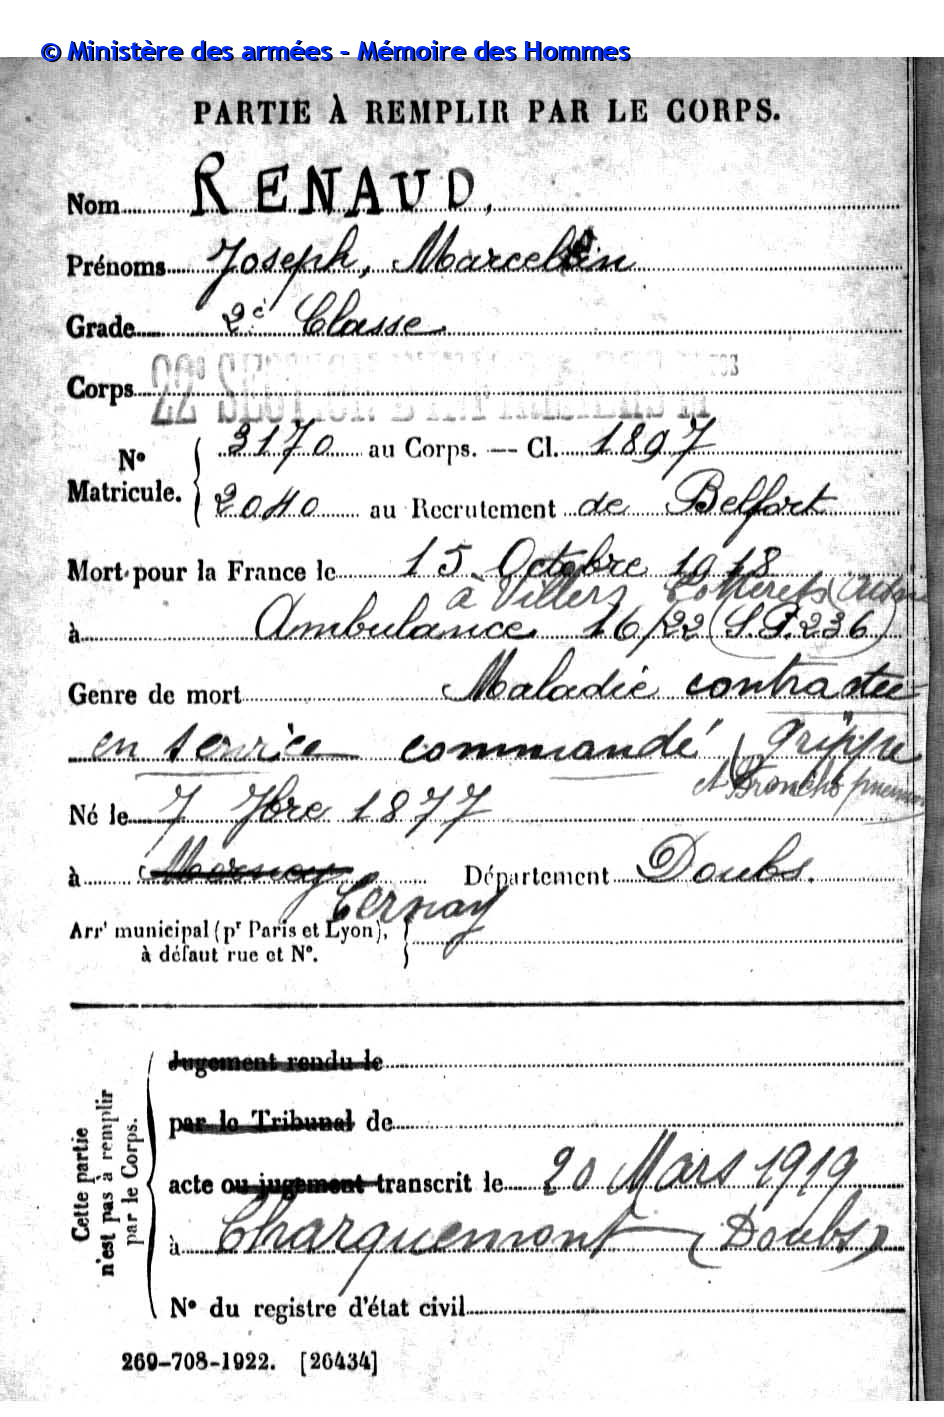 © Ministère des armées - Mémoire des Hommes
PARTIE À REMPLIR PAR LE CORPS.
Nom RENAUD,
Prénoms Joseph, Marcellin
Grade 2e Classe
Corps 22e SECTION D'INFIRMIERS Mres
No Matricule. 3170 au Corps. — Cl. 1897
2040 au Recrutement de Belfort
Mort pour la France le 15 Octobre 1918
à Villers Cotterets (Aisne
à Ambulance 16/22 (S.P. 236)
Genre de mort Maladie contractée
en service commandé (grippe
et Broncho pneumo
Né le 7 7bre 1877
à Mornay Département Doubs.
Cernay
Arrt municipal (pr Paris et Lyon),
à défaut rue et No.
Cette partie n'est pas à remplir par le Corps.
Jugement rendu le
par le Tribunal de
acte ou jugement transcrit le 20 Mars 1919
à Charquemont (Doubs)
No du registre d'état civil
269-708-1922. [26434]